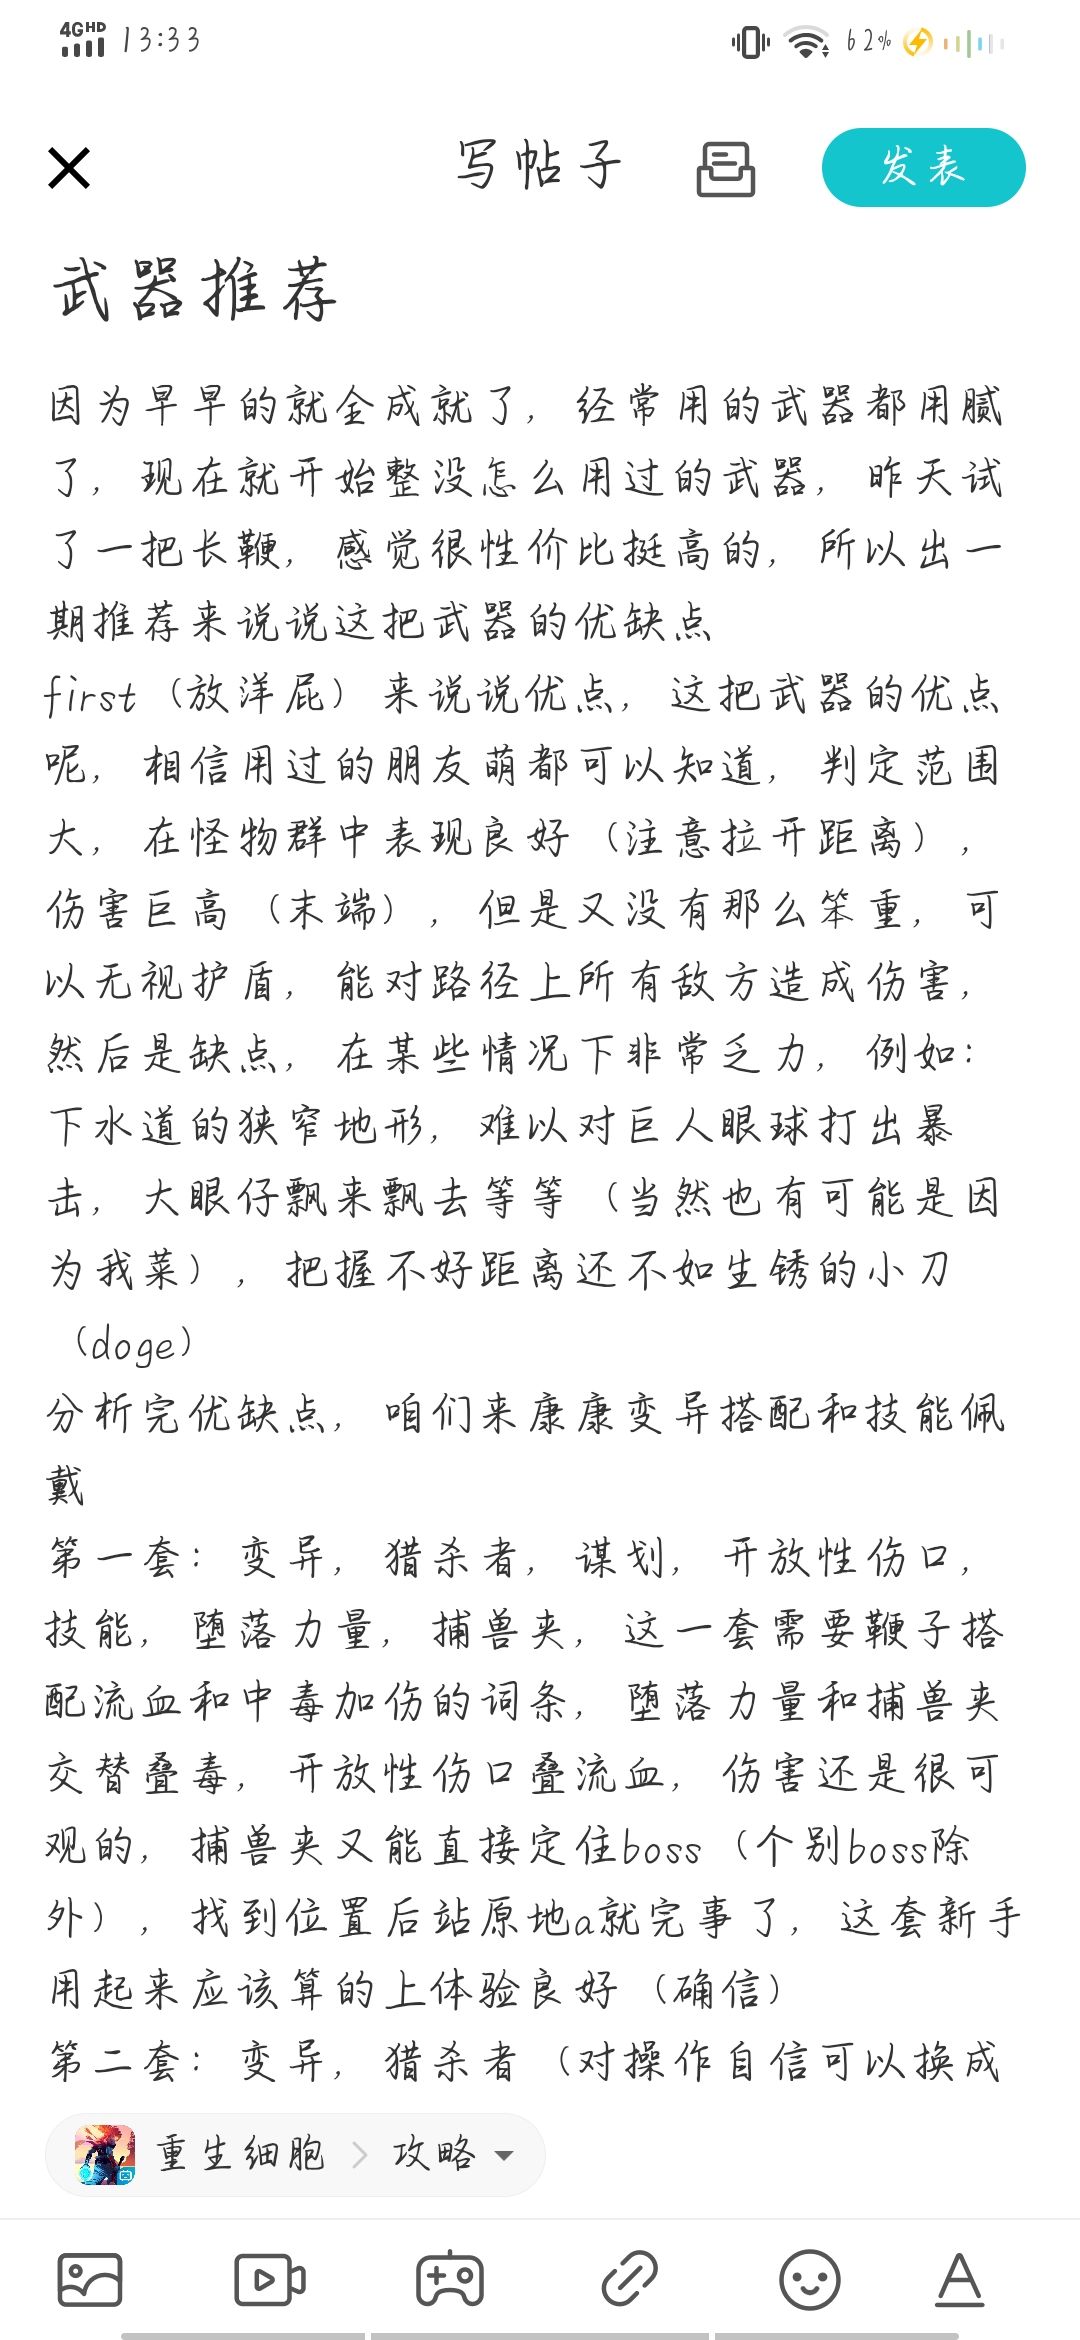 4GHD 13:33 62%
写帖子 发表
武器推荐
因为早早的就全成就了，经常用的武器都用腻
了，现在就开始整没怎么用过的武器，昨天试
了一把长鞭，感觉很性价比挺高的，所以出一
期推荐来说说这把武器的优缺点
first（放洋屁）来说说优点，这把武器的优点
呢，相信用过的朋友萌都可以知道，判定范围
大，在怪物群中表现良好（注意拉开距离），
伤害巨高（末端），但是又没有那么笨重，可
以无视护盾，能对路径上所有敌方造成伤害，
然后是缺点，在某些情况下非常乏力，例如：
下水道的狭窄地形，难以对巨人眼球打出暴
击，大眼仔飘来飘去等等（当然也有可能是因
为我菜），把握不好距离还不如生锈的小刀
（doge）
分析完优缺点，咱们来康康变异搭配和技能佩
戴
第一套：变异，猎杀者，谋划，开放性伤口，
技能，堕落力量，捕兽夹，这一套需要鞭子搭
配流血和中毒加伤的词条，堕落力量和捕兽夹
交替叠毒，开放性伤口叠流血，伤害还是很可
观的，捕兽夹又能直接定住boss（个别boss除
外），找到位置后站原地a就完事了，这套新手
用起来应该算的上体验良好（确信）
第二套：变异，猎杀者（对操作自信可以换成
重生细胞 > 攻略